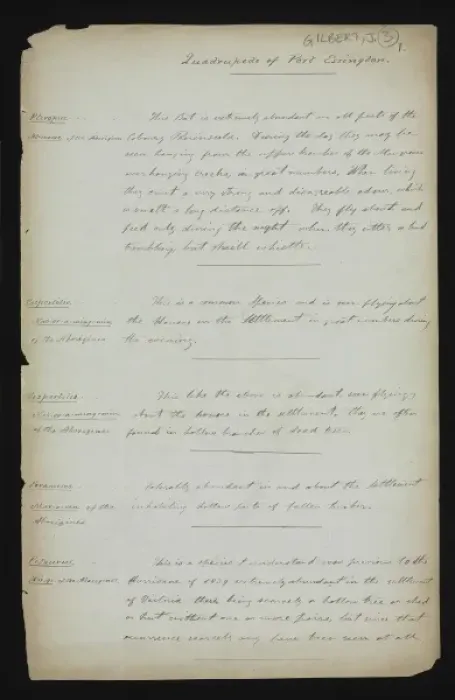 GILBERT, J. 3 1.
Quadrupeds of Port Essington.
Pteropus
This Bat is extremely abundant in all parts of the
Cobourg Peninsula. During the day they may be
seen hanging from the upper branches of the Mangroves
overhanging creeks, in great numbers. When living
they emit a very strong and disagreeable odour, which
is smelt a long distance off. They fly about and
feed only during the night when they utter a loud
trembling but shrill whistle.
Vespertilio
of the Aborigines
This is a common Species and is seen flying about
the Houses on the Settlement in great numbers during
the evening.
Vespertilio
of the Aborigines
This like the above is abundant, seen flying
about the houses in the settlement, they are often
found in hollow branches of dead trees.
of the
Aborigines
tolerably abundant in and about the Settlement
inhabiting hollow parts of fallen timber.
Petaurus
Aborigines
This is a species I understand was previous to the
Hurricane of 1839 extremely abundant in the settlement
of Victoria there being scarcely a hollow tree or shed
or hut without one or more pairs, but since that
occurrence scarcely any have been seen at all